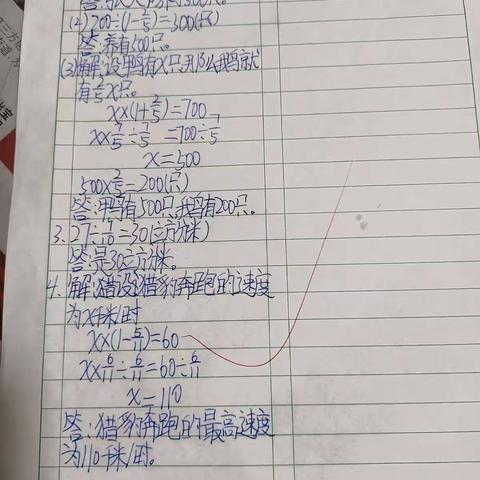 (2)700÷(1-2/5)=500(只)
答:养有500只。
(3)解:设鸭有x只,那么鹅就
有2/5x只。
x×(1+2/5)=700
x×7/5÷7/5=700÷7/5
x=500
500×2/5=200(只)
答:鸭有500只,鹅有200只。
3、27÷9/10=30(立方米)
答:是30立方米。
4、解:设猎豹奔跑的速度
为x千米/时
x×(1-5/11)=60
x×6/11÷6/11=60÷6/11
x=110
答:猎豹奔跑的最高速度
为110千米/时。